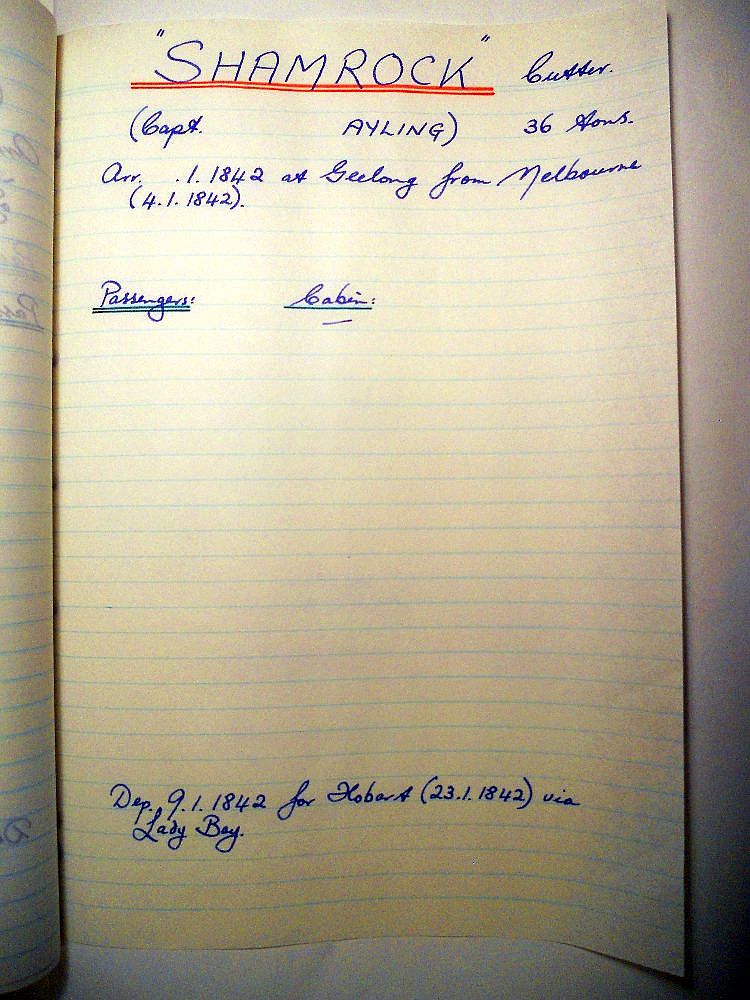 "SHAMROCK" Cutter.
(Capt. AYLING) 36 tons.
Arr. .1.1842 at Geelong from Melbourne
(4.1.1842).
Passengers: Cabin:
—
Dep. 9.1.1842 for Hobart (23.1.1842) via
Lady Bay.